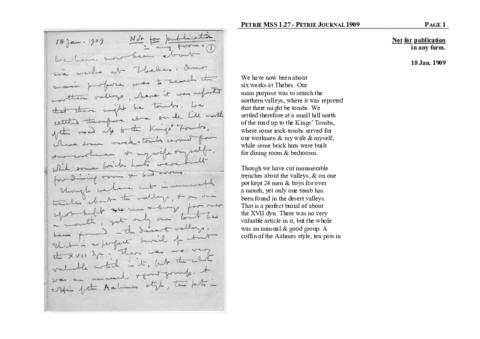 18 Jan. 1909 Not for publication
in any form. 1
We have now been about
six weeks at Thebes. Our
main purpose was to search the
northern valleys, where it was reported
that there might be tombs. We
settled therefore at a small hill north
of the road up to the Kings' Tombs,
where some rock-tombs served for
our workmen & my wife & myself,
while some brick huts were built
for dining room & bed rooms.
Though we have cut innumerable
trenches about the valleys, & on one
spot kept 24 men & boys for over
a month, yet only one tomb has
been found in the desert valleys.
That is a perfect burial of about
the XVII dyn. There was no very
valuable article in it, but the whole
was an unusual & good group. A
coffin of the Aahmes style, ten pots in
PETRIE MSS 1.27 - PETRIE JOURNAL 1909 PAGE 1
Not for publication
in any form.
18 Jan. 1909
We have now been about
six weeks at Thebes. Our
main purpose was to search the
northern valleys, where it was reported
that there might be tombs. We
settled therefore at a small hill north
of the road up to the Kings' Tombs,
where some rock-tombs served for
our workmen & my wife & myself,
while some brick huts were built
for dining room & bedrooms.
Though we have cut innumerable
trenches about the valleys, & on one
pot kept 24 men & boys for over
a month, yet only one tomb has
been found in the desert valleys.
That is a perfect burial of about
the XVII dyn. There was no very
valuable article in it, but the whole
was an unusual & good group. A
coffin of the Aahmes style, ten pots in